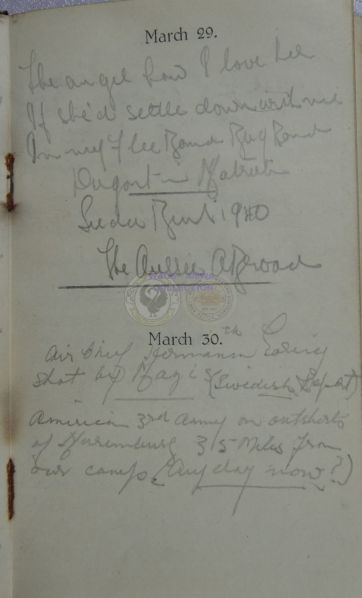 March 29.
The angel how I love her
If she'd settle down with me
In my Flee Bound Bug Bound
Dugout in Matruh
Sidi Bird 1940
The Aussie Abroad
March 30.th
Air Chief Hermann Goering
shot by Nazis (Swedish Report)
American 3rd Army on outskirts
of Nuremburg 35 Miles from
our camp. (Any day now?)